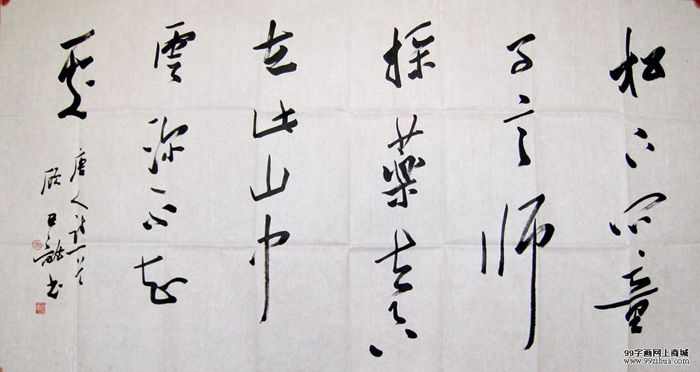 松下问童
子言师
採藥去只
在此山中
雲深不知
處
唐人诗一首
书
99字画网上商城
www.99zihua.com